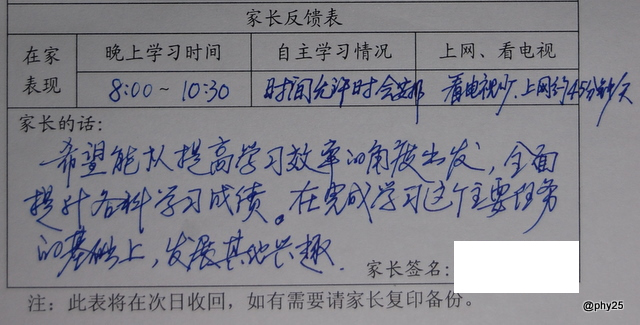 家长反馈表
在家 晚上学习时间 自主学习情况 上网、看电视
表现 8:00~10:30 时间允许时会安排 看电视少、上网约45分钟/天
家长的话:
希望能从提高学习效率的角度出发,全面
提升各科学习成绩。在完成学习这个主要任务
的基础上,发展其他兴趣.
家长签名:
注:此表将在次日收回,如有需要请家长复印备份。
@phy25